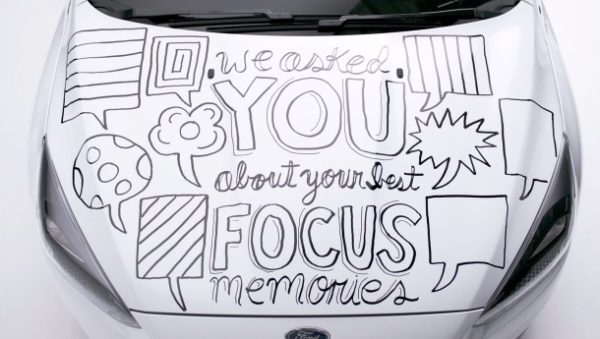 we asked
YOU
about your best
FOCUS
memories
Ford